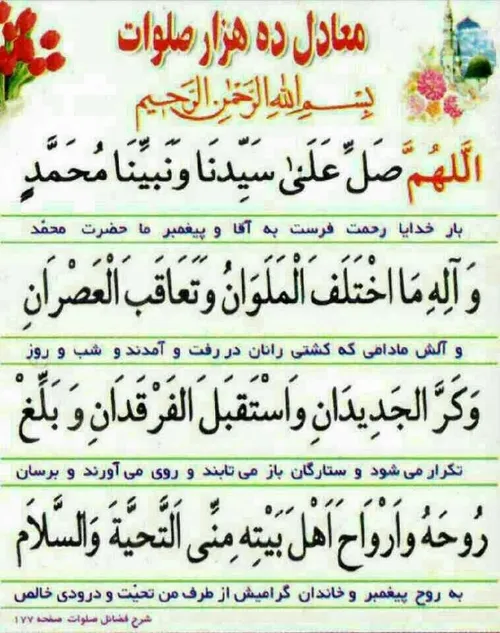 معادل ده هزار صلوات
بِسْمِ اللهِ الرَّحْمٰنِ الرَّحیمِ
اَللهُمَّ صَلِّ عَلَیٰ سَیِّدِنَا وَنَبِیِّنَا مُحَمَّدٍ
بار خدایا رحمت فرست به آقا و پیغمبر ما حضرت محمّد
وَ آلِهِ مَا اخْتَلَفَ الْمَلَوَانُ وَتَعَاقَبَ الْعَصْرَانِ
و آلش مادامی که کشتی رانان در رفت و آمدند و شب و روز
وَکَرَّ الْجَدِیدَانِ وَاسْتَقْبَلَ الفَرْقَدَانِ وَ بَلِّغْ
تکرار می شود و ستارگان باز می تابند و روی می آورند و برسان
رُوحَهُ وَاَرْوَاحَ اَهْلَ بَیْتِهِ مِنِّی اَلتَّحیَّةَ وَالسَّلاَمَ
به روح پیغمبر و خاندان گرامیش از طرف من تحیّت و درودی خالص
شرح فضائل صلوات صفحه ۱۷۷